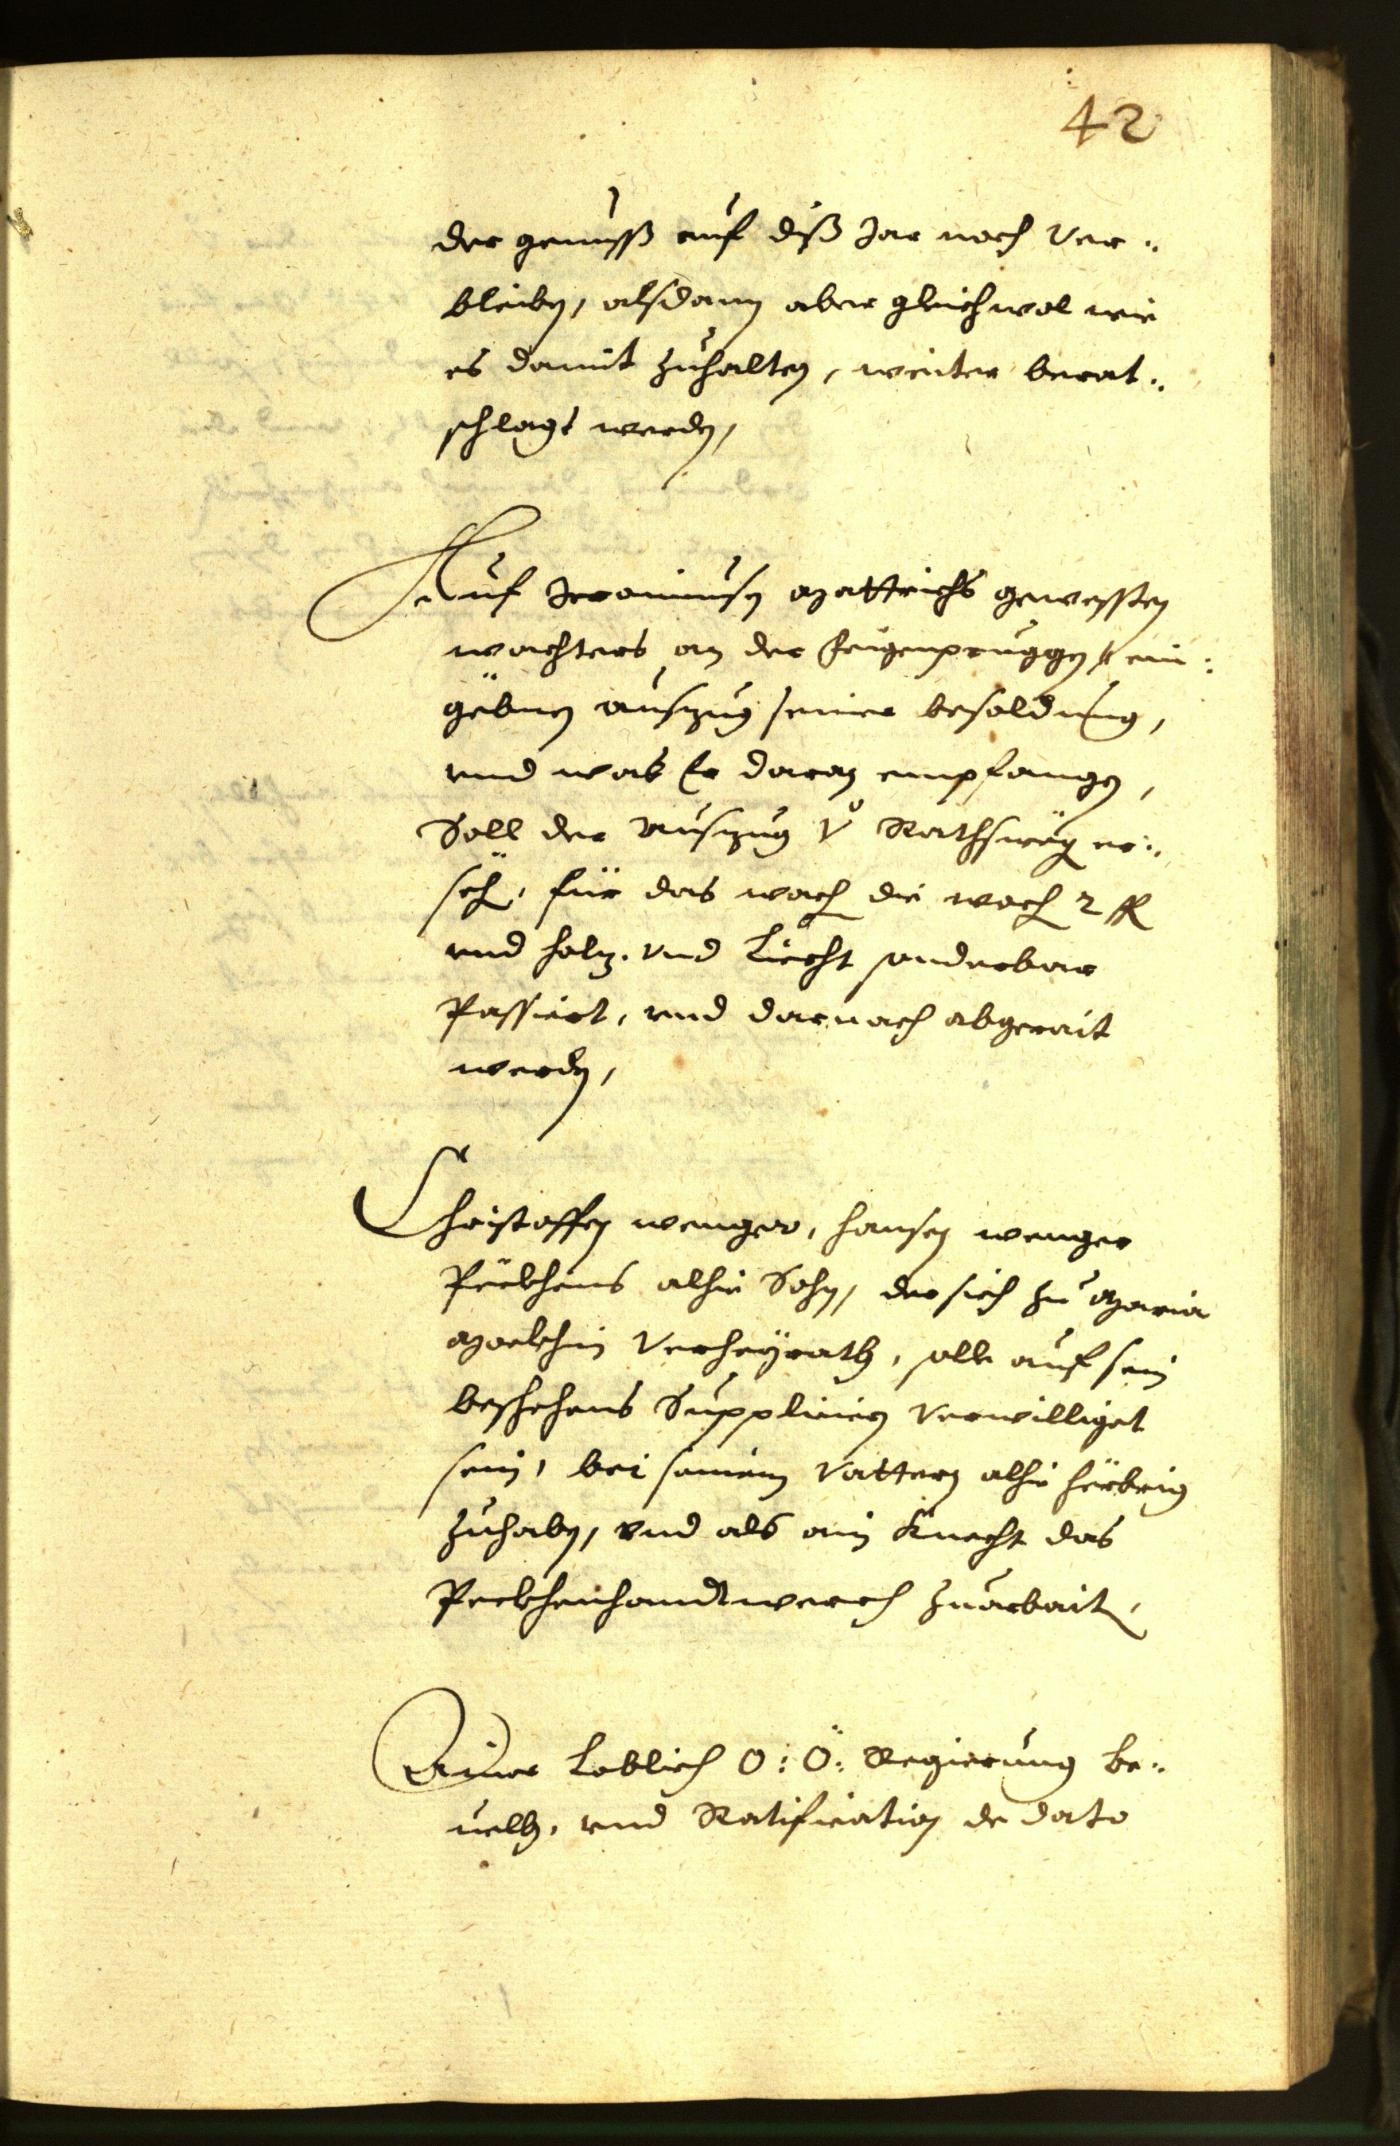 42
der genuss auf diß Jar noch ver¬
bleiben, alsdann aber gleichwol wie
es damit zuhalten, weiter berat¬
schlagt werden,
Auf Jeronimusen Mattrichs gewessten
wachters an der Eysenpruggen ein¬
gebnen auszug seiner besoldung,
vnd was Er daran empfangen,
Soll der auszug v Rathswegen er¬
sech, für das wach die woch 2 fl
vnd holz. vnd Liecht sonderbar
Passiert, vnd darnach abgerait
werden,
Christoffen wenger, hansen wenger
Peckhens alhie Sohn, der sich zu Maria
verheyrath, solle auf sein
beschehens Supplicien verwilliget
sein, bei seinem Vattern alhie herbrig
zuhaben, vnd als ain Knecht das
Peckhenhandtwerch zuarbait,
Ainer Loblich O: Ö: Regierung be¬
uelh, vnd Ratification de dato